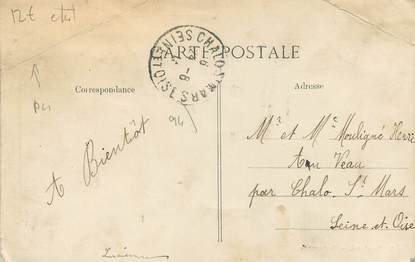 CARTE POSTALE
CHALO-ST MARS
SEINE-ET-OISE
Correspondance
Adresse
A Bientôt
94
Mr et Me Mouligné Henri
Au Veau
par Chalo. St. Mars
Seine et Oise